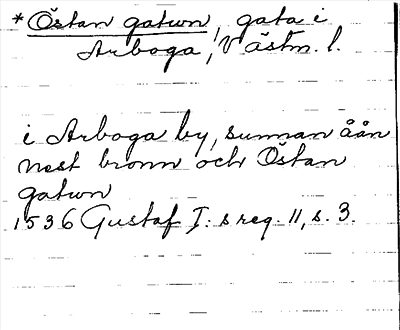 *Östan gatwn, gata i
Arboga, Västm. l.
i Arboga by, sunnan åån
nest bronn och Östan
gatwn
1536 Gustaf I:s reg. 11, s. 3.